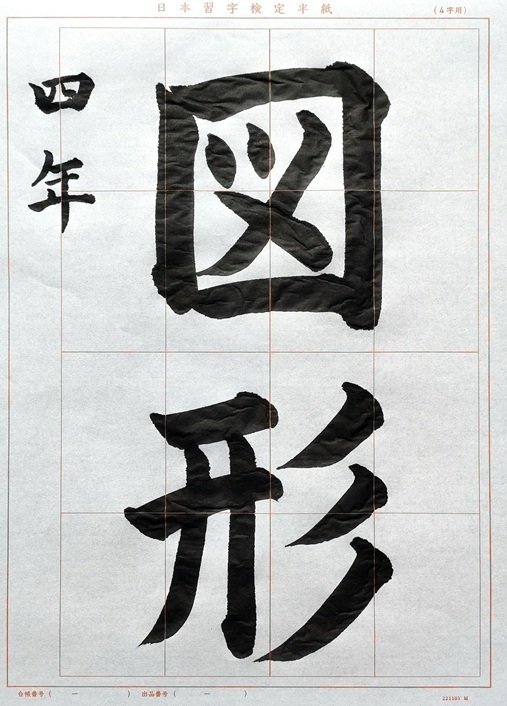 日本習字検定半紙
(4字用)
図形
四年
台帳番号 ( ー ) 出品番号 ( ー )
221105 M